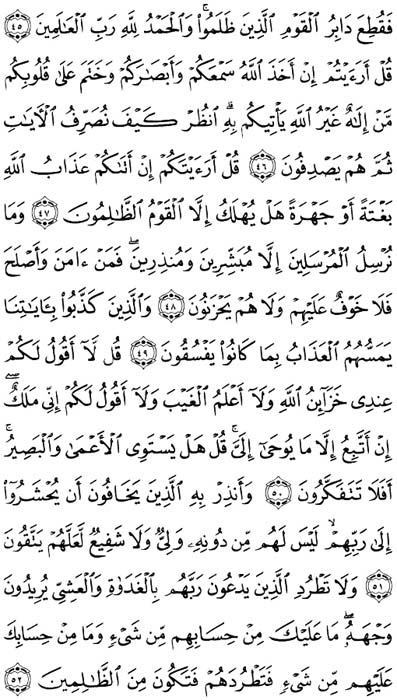 فَقُطِعَ دَابِرُ ٱلْقَوْمِ ٱلَّذِينَ ظَلَمُوا۟ ۚ وَٱلْحَمْدُ لِلَّهِ رَبِّ ٱلْعَٰلَمِينَ ٤٥
قُلْ أَرَءَيْتُمْ إِنْ أَخَذَ ٱللَّهُ سَمْعَكُمْ وَأَبْصَٰرَكُمْ وَخَتَمَ عَلَىٰ قُلُوبِكُم
مَّنْ إِلَٰهٌ غَيْرُ ٱللَّهِ يَأْتِيكُم بِهِ ۗ ٱنظُرْ كَيْفَ نُصَرِّفُ ٱلْءَايَٰتِ
ثُمَّ هُمْ يَصْدِفُونَ ٤٦ قُلْ أَرَءَيْتَكُمْ إِنْ أَتَىٰكُمْ عَذَابُ ٱللَّهِ
بَغْتَةً أَوْ جَهْرَةً هَلْ يُهْلَكُ إِلَّا ٱلْقَوْمُ ٱلظَّٰلِمُونَ ٤٧ وَمَا
نُرْسِلُ ٱلْمُرْسَلِينَ إِلَّا مُبَشِّرِينَ وَمُنذِرِينَ ۖ فَمَنْ ءَامَنَ وَأَصْلَحَ
فَلَا خَوْفٌ عَلَيْهِمْ وَلَا هُمْ يَحْزَنُونَ ٤٨ وَٱلَّذِينَ كَذَّبُوا۟ بِـَٔايَٰتِنَا
يَمَسُّهُمُ ٱلْعَذَابُ بِمَا كَانُوا۟ يَفْسُقُونَ ٤٩ قُل لَّآ أَقُولُ لَكُمْ
عِندِى خَزَآئِنُ ٱللَّهِ وَلَآ أَعْلَمُ ٱلْغَيْبَ وَلَآ أَقُولُ لَكُمْ إِنِّى مَلَكٌ ۖ
إِنْ أَتَّبِعُ إِلَّا مَا يُوحَىٰٓ إِلَىَّ ۚ قُلْ هَلْ يَسْتَوِى ٱلْأَعْمَىٰ وَٱلْبَصِيرُ ۚ
أَفَلَا تَتَفَكَّرُونَ ٥٠ وَأَنذِرْ بِهِ ٱلَّذِينَ يَخَافُونَ أَن يُحْشَرُوٓا۟
إِلَىٰ رَبِّهِمْ ۙ لَيْسَ لَهُم مِّن دُونِهِۦ وَلِىٌّ وَلَا شَفِيعٌ لَّعَلَّهُمْ يَتَّقُونَ
٥١ وَلَا تَطْرُدِ ٱلَّذِينَ يَدْعُونَ رَبَّهُم بِٱلْغَدَوٰةِ وَٱلْعَشِىِّ يُرِيدُونَ
وَجْهَهُۥ ۖ مَا عَلَيْكَ مِنْ حِسَابِهِم مِّن شَىْءٍ وَمَا مِنْ حِسَابِكَ
عَلَيْهِم مِّن شَىْءٍ فَتَطْرُدَهُمْ فَتَكُونَ مِنَ ٱلظَّٰلِمِينَ ٥٢